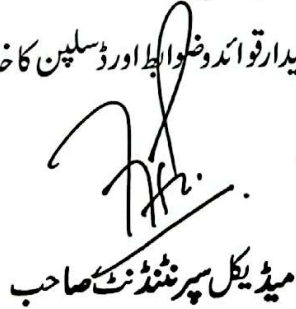 یدار قوائد و ضوابط اور ڈسپلن کا خ
میڈیکل سپرنٹنڈنٹ صاحب